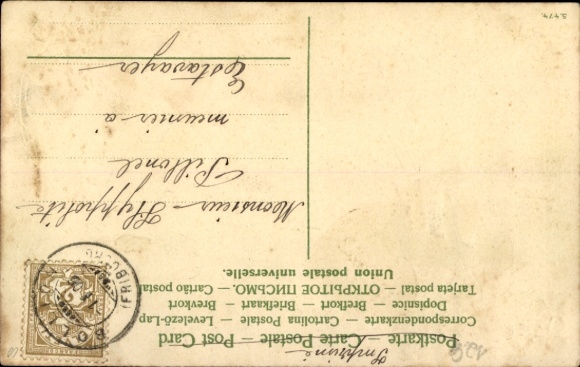 Imprimé
Postkarte — Carte Postale — Post Card
Correspondenzkarte — Cartolina Postale — Levelező-Lap
Dopisnice — Brefkort — Briefkaart — Brevkort
Tarjeta postal — ОТКРЫТОЕ ПИСЬМО. — Cartão postal
Union postale universelle.
(FRIBOURG)
Monsieur Hyppolite
Pillonel
meunier à
Estavayer